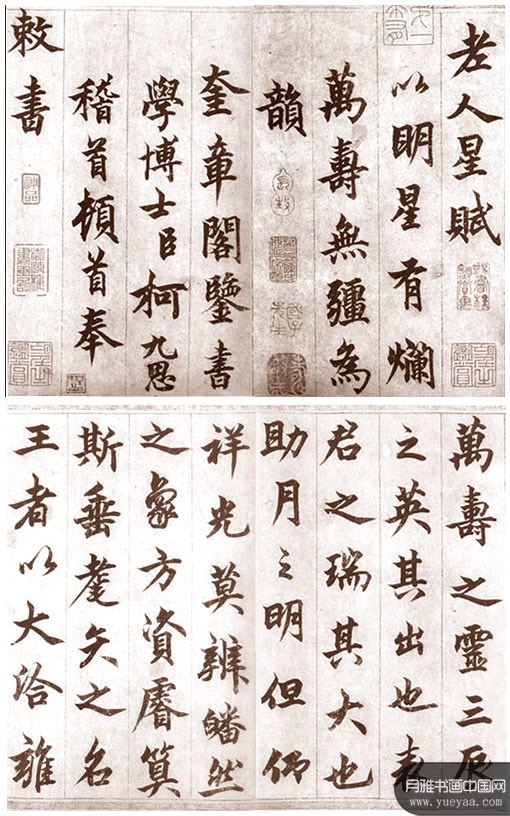 老人星賦
以明星有爛
萬壽無疆為
韻
奎章閣鑒書
學博士臣柯九思
稽首頓首奉
敕書
萬壽之靈三辰
之英其出也表
君之瑞其大也
助月之明但仰
祥光莫辨皤然
之象方資睿算
斯垂耄矣之名
王者以大洽雍
月雅书画中国网
www.yueyaa.com